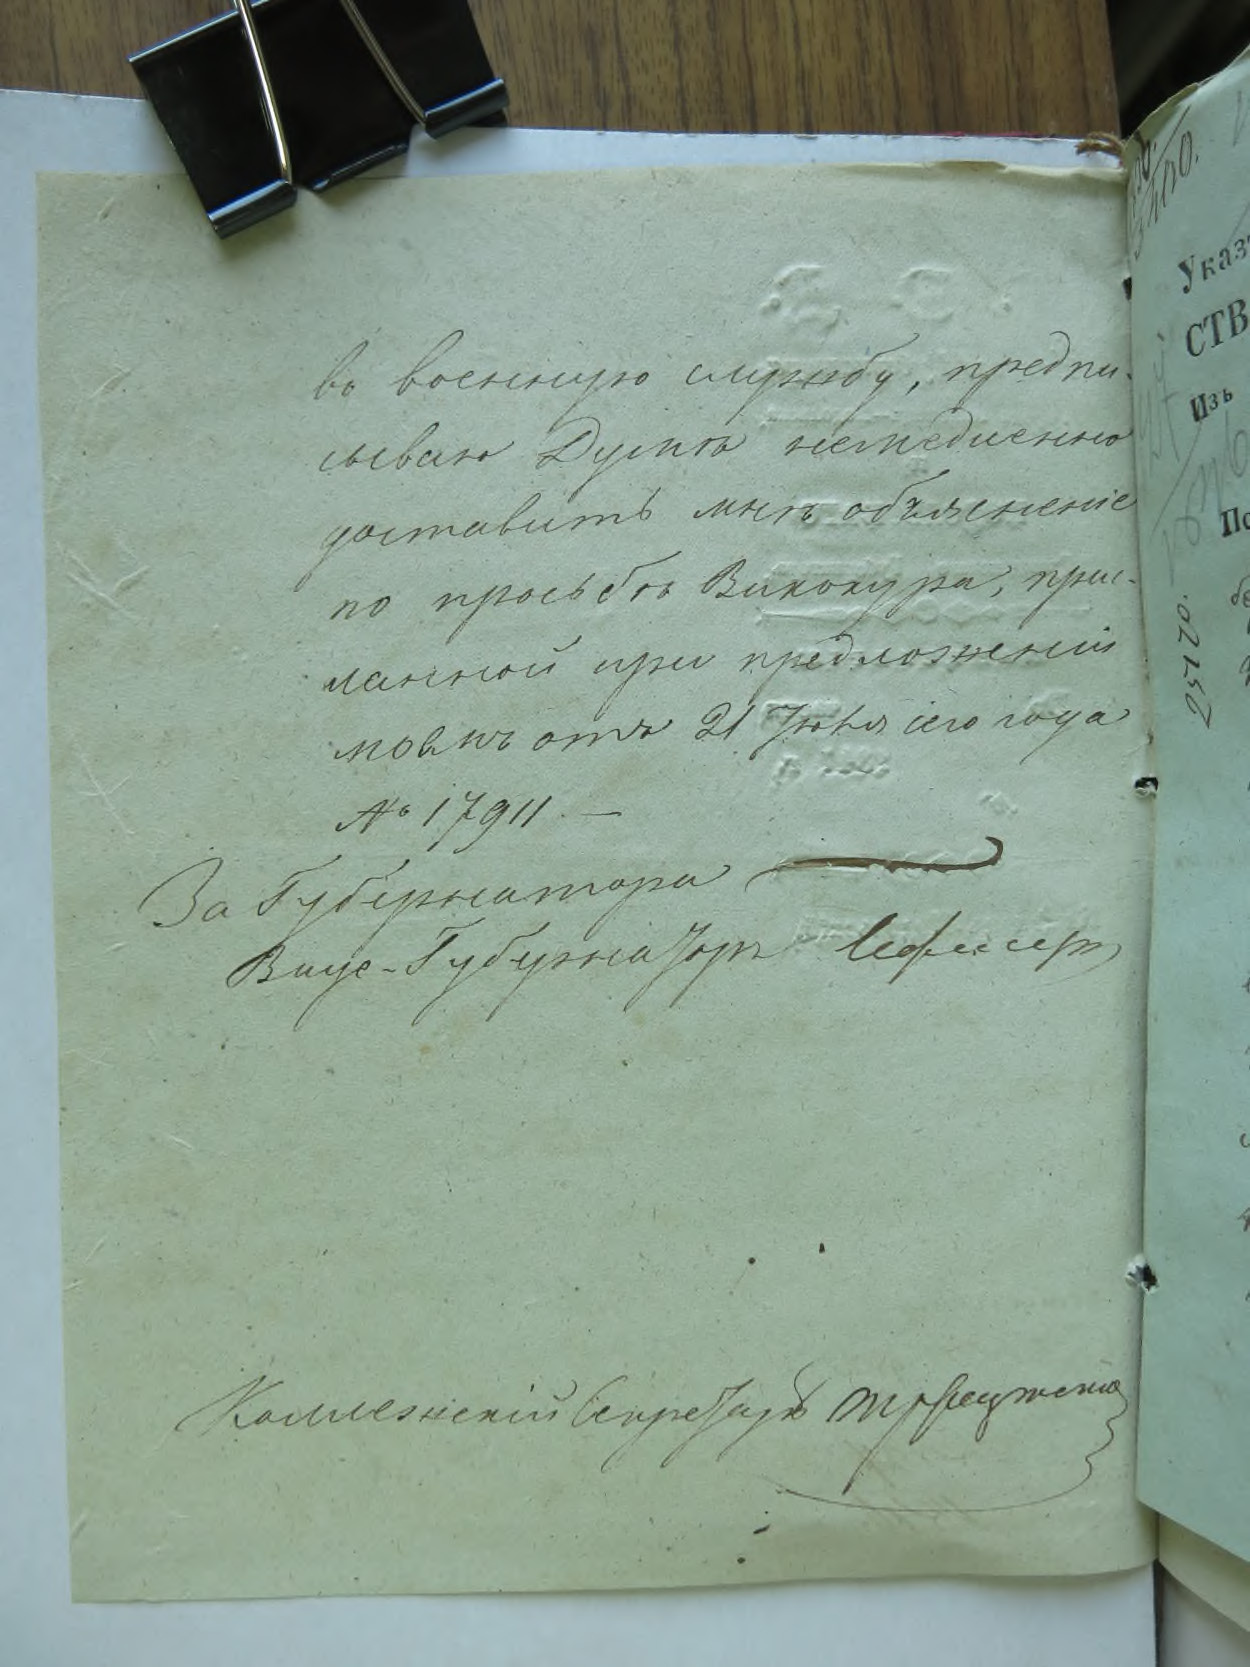 въ военную службу, предпи-
сываю Думѣ немедленно
доставить мнѣ объясненіе
по просьбѣ Винокура, прис-
ланной при предложеніи
моемъ отъ 21 Іюля сего года
№ 17911 —
За Губернатора
Вице-Губернаторъ
Коллежскій Секретарь
Указ
СТВ
Изъ
По